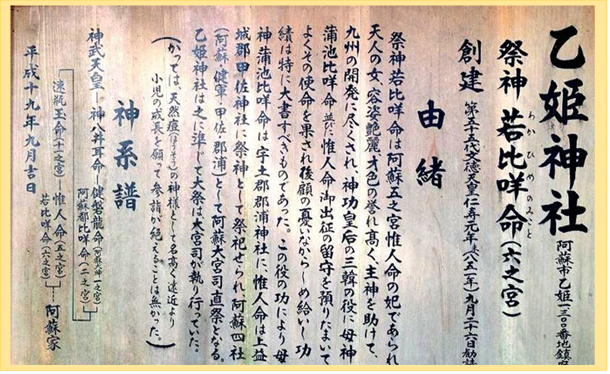 乙姫神社
阿蘇市乙姫一三〇〇番地鎮座
祭神 若比咩命(六之宮)
わかひめのみこと
創建 第五十五代文徳天皇仁寿元年(八五一年)九月二十六日勧請
由緒
祭神若比咩命は阿蘇五之宮惟人命の妃であられ
天人の女、容姿艶麗才色の誉れ高く、主神を助けて、
九州の開発に尽くされ、神功皇后の三韓の役に母神
蒲池比咩命並に惟人命御出征の留守を預りたまいて
よくその使命を果され後顧の憂いなからしめ給いし功
績は特に大書すべきものであった。この役の功により母
神蒲池比咩命は宇土郡郡浦神社に惟人命は上益
城郡甲佐神社に祭神として祭祀せられ阿蘇四社
(阿蘇・健軍・甲佐・郡浦)として阿蘇大宮司直祭となる。
乙姫神社は之に準じて大祭は大宮司が執り行っていた。
(かつては、天然痘(ほうそう)の神様としても高く遠近より
小児の成長を願って参詣が絶えることは無かった。)
神系譜
神武天皇―神八井耳命―健磐龍命(阿蘇大神一之宮)
阿蘇都比咩命(二之宮)
速瓶玉命(十一之宮)―惟人命(五之宮)
若比咩命(六之宮)
阿蘇家
平成十九年九月吉日